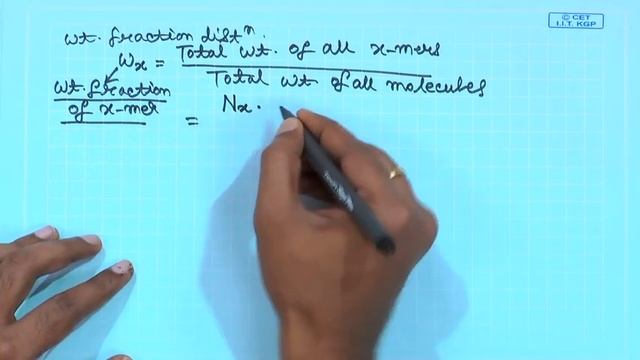 © CET
I.I.T. KGP
wt. fraction distⁿ.
wₓ = Total wt. of all x-mers
Total wt. of all molecules
wt. fraction
of x-mer
= Nₓ.